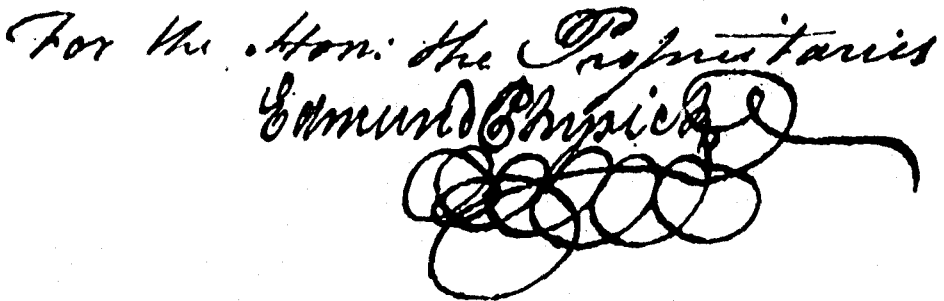 For the Hon: the Proprietaries
Edmund Physick